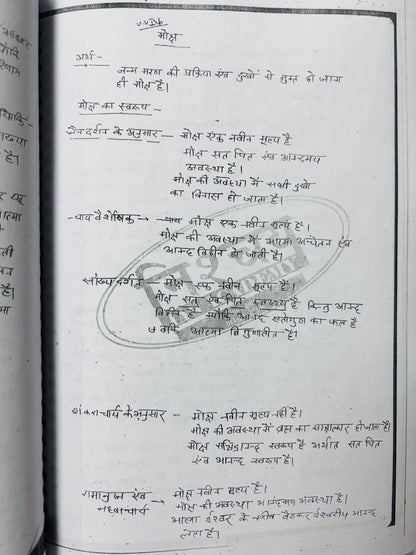 V.V.Imp
मोक्ष
अर्थ -
जन्म मरण की प्रक्रिया एंव दुखों से मुक्त हो जाना
ही मोक्ष है।
मोक्ष का स्वरूप -
जैन दर्शन के अनुसार - मोक्ष एक नवीन मूल्य है
मोक्ष सत चित एंव आनन्दमय
अवस्था है।
मोक्ष की अवस्था में सभी दुखो
का विनाश हो जाता है।
न्याय वैशेषिक → मोक्ष एक नवीन मूल्य है।
मोक्ष की अवस्था में आत्मा अचेतन एंव
आनन्द विहीन हो जाती है।
सांख्य दर्शन - मोक्ष एक नवीन मूल्य है।
मोक्ष सत् एंव चित् स्वरूप है किन्तु आनन्द
विहीन है क्योंकि आनंद सतोगुण का फल है
आत्मा त्रिगुणातीत है।
शंकराचार्य के अनुसार - मोक्ष नवीन मूल्य नहीं है।
मोक्ष की अवस्था में ब्रह्म का साक्षात्कार होजाता है।
मोक्ष सच्चिदानन्द स्वरूप है अर्थात सत चित
एंव आनन्द स्वरूप है।
रामानुज एंव - मोक्ष नवीन मूल्य है।
मध्वाचार्य मोक्ष की अवस्था आनंदमय अवस्था है।
आत्मा ईश्वर के बैठकर ईश्वरीय आनन्द
लेता है।